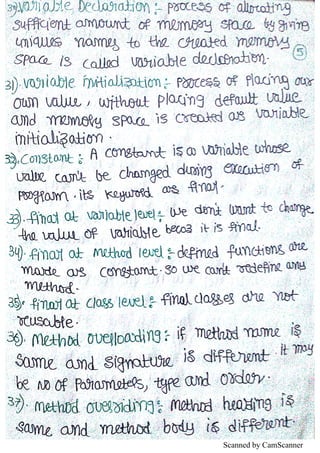 30) Variable Declaration :- process of allocating
sufficient amount of memory space by giving
uniques names to the created memory
space is called variable declaration.
5
31). variable initialization :- process of placing our
own value, without placing default value
and memory space is created as variable
initialization.
32). Constant : A constant is a variable whose
value can't be changed during execution of
program. its keyword as final.
33). final at variable level :- we don't want to change
the value of variable becoz it is final.
34). final at Method level :- defined functions are
made as constant. so we can't redefine any
method.
35). final at class level :- final classes are not
reusable.
36). Method overloading :- if method name is
same and signature is different. it may
be no of Parameters, type and order.
37). Method overriding :- Method heading is
same and method body is different.
Scanned by CamScanner